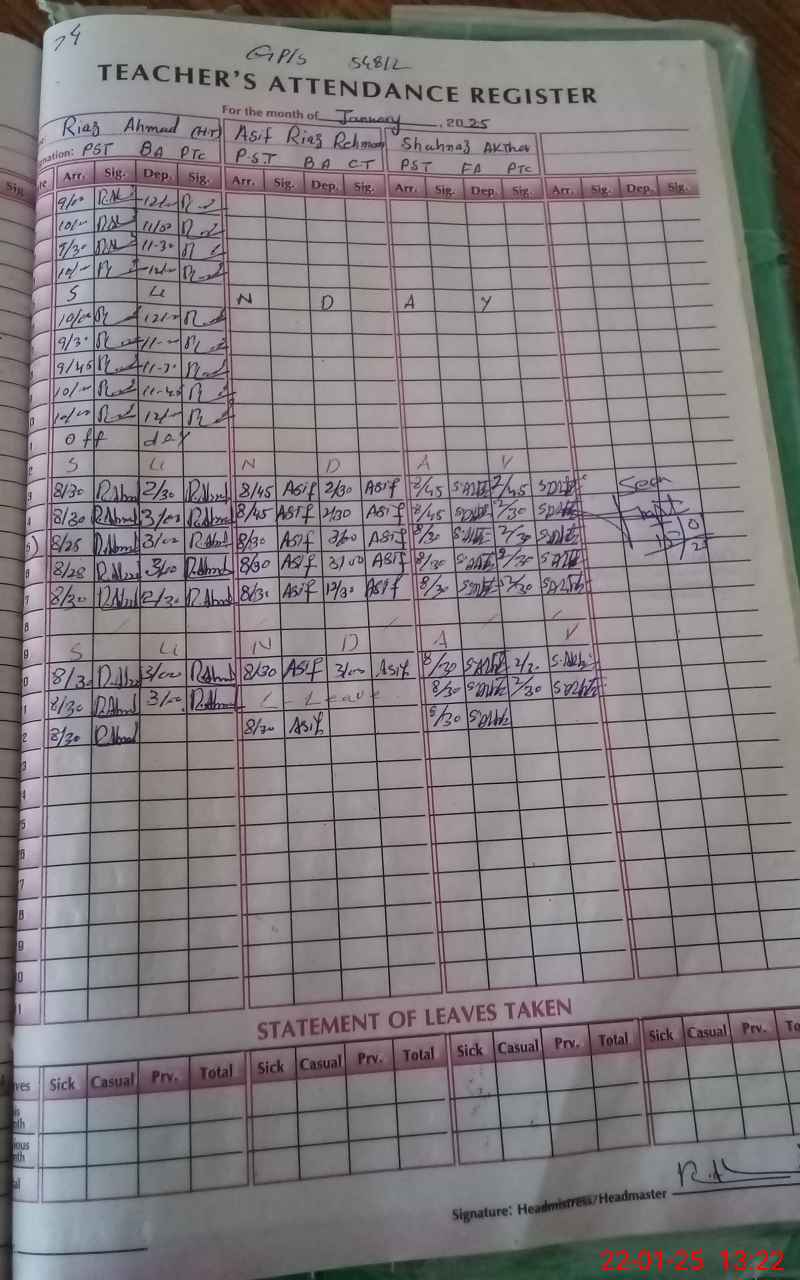 74
GP/s 548/L
TEACHER'S ATTENDANCE REGISTER
For the month of January, 2025
Riaz Ahmad (H.T) Asif Riaz Rehman Shahnaz AKther
nation: PST BA PTC P.ST BA CT PST FA PTC
Sig. te Arr. Sig. Dep. Sig. Arr. Sig. Dep. Sig. Arr. Sig. Dep. Sig. Arr. Sig. Dep. Sig.
9/00 12/00
10/00 11/00
9/30 11-30
10/00 12/00
S U N D A Y
10/00 12/00
9/30 11-00
9/45 11-30
10/00 11-45
0 10/00 12/00
1 Off day
2 S U N D A Y
3 8/30 R.Ahmd 2/30 R.Ahmd 8/45 Asif 2/30 Asif 8/45 2/45 Seen
4 8/30 R.Ahmd 3/00 R.Ahmd 8/45 Asif 2/30 Asif 8/45 2/30
5 8/25 R.Ahmd 3/00 R.Ahmd 8/30 Asif 3/00 Asif 8/30 2/30
6 8/28 R.Ahmd 3/00 R.Ahmd 8/30 Asif 3/00 Asif 8/30 2/30
7 8/30 R.Ahmd 12/30 R.Ahmd 8/30 Asif 12/30 Asif 8/30 12/30
8
9 S U N D A Y
0 8/30 R.Ahmd 3/00 R.Ahmd 8/30 Asif 3/00 Asif 8/30 2/30
1 8/30 R.Ahmd 3/00 R.Ahmd L-Leave 8/30 2/30
2 8/30 R.Ahmd 8/30 Asif 8/30
3
4
5
6
7
8
9
0
1
STATEMENT OF LEAVES TAKEN
ves Sick Casual Prv. Total Sick Casual Prv. Total Sick Casual Prv. Total Sick Casual Prv. To
is
nth
ious
nth
al
Signature: Headmistress/Headmaster
22-01-25 13:22